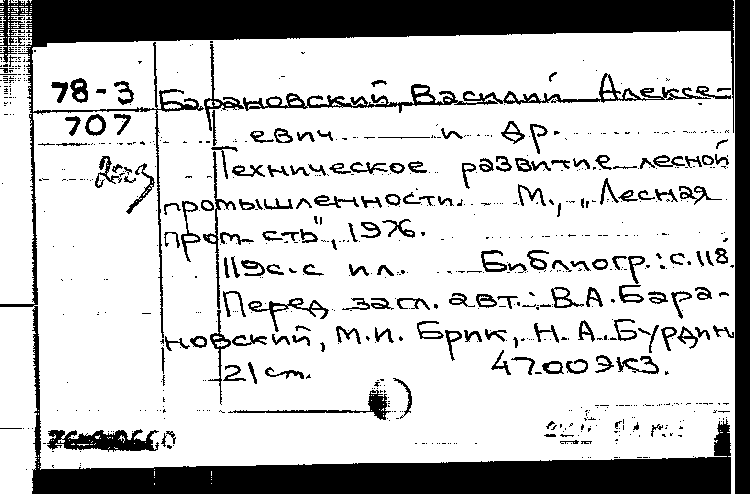 78-3
707
Барановский, Василий Алексе-
евич и др.
Техническое развитие лесной
промышленности. М., „Лесная
пром-сть", 1976.
119с.с ил. Библиогр.: с.118
Перед загл. авт.: В.А.Бара-
новский, М.И. Брик, Н.А.Бурдин
21см. 4700экз.